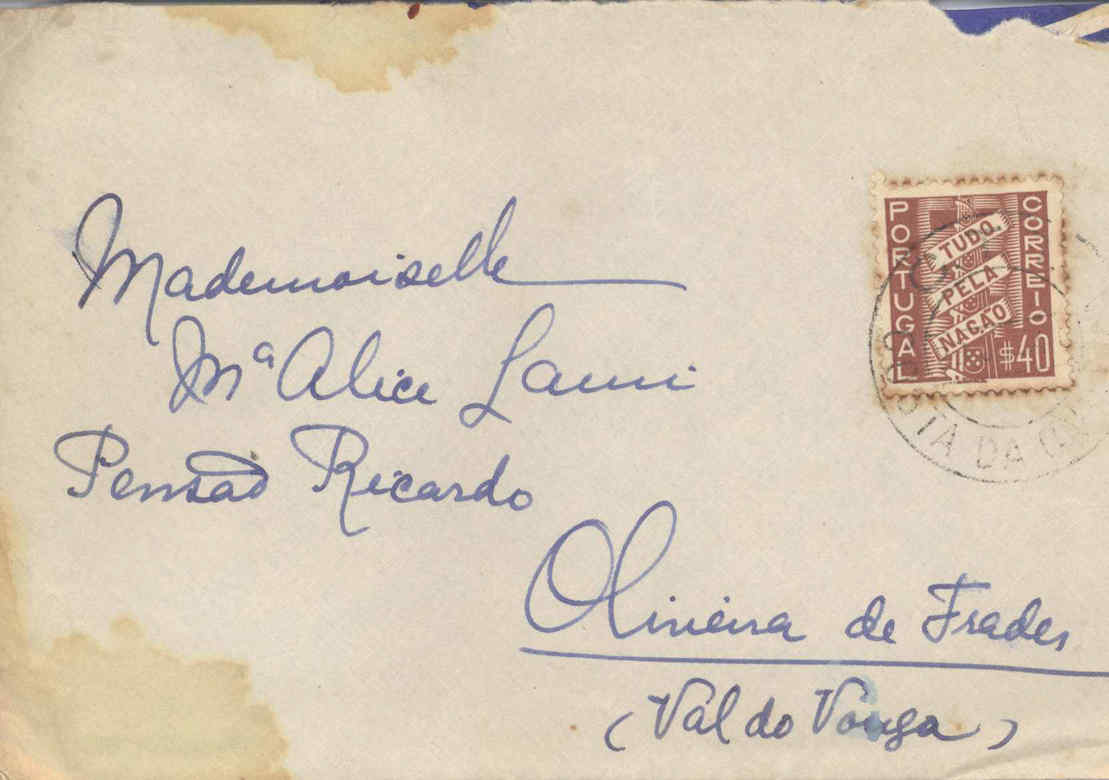 Mademoiselle
Mª Alice
Pensão Ricardo
Oliveira de Frades
(Val do Vouga)
PORTUGAL
CORREIO
TUDO
PELA
NAÇÃO
$40
DA